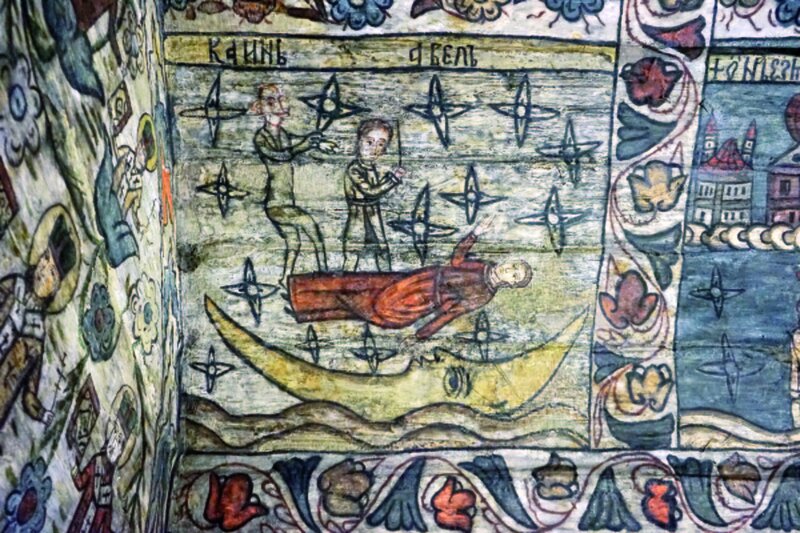 КАИНЬ АВЕЛЪ